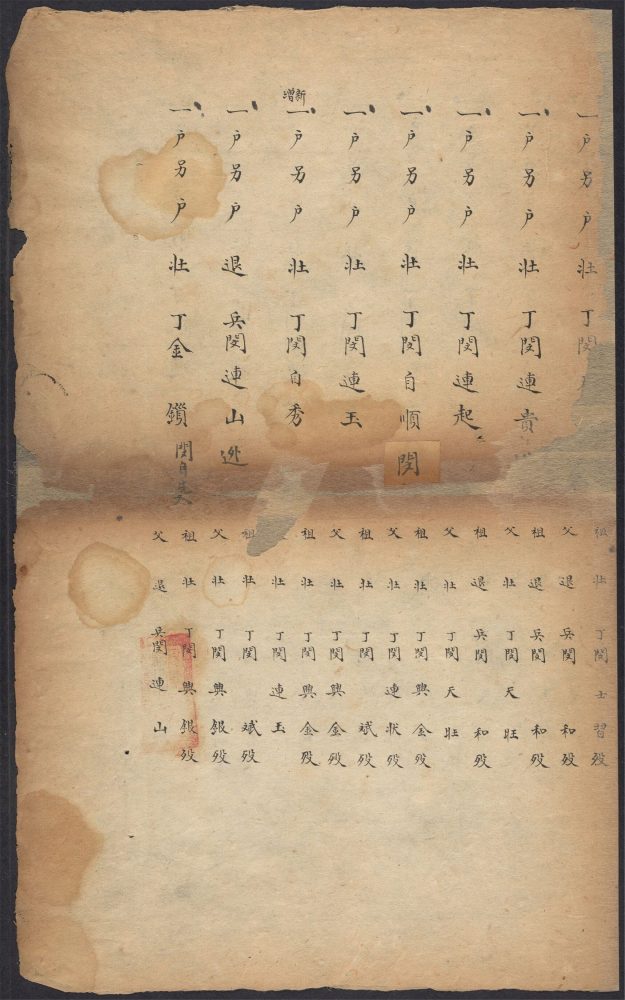 一户另户壮丁閔
一户另户壮丁閔連貴
一户另户壮丁閔連起
一户另户壮丁閔自順
閔
一户另户壮丁閔連玉
新增
一户另户壮丁閔自秀
一户另户退兵閔連山逃
一户另户壮丁金鎖
閔自
祖壮丁閔士習殁
父退兵閔和殁
祖退兵閔和殁
父壮丁閔天旺
祖退兵閔和殁
父壮丁閔天旺
祖壮丁閔興金殁
父壮丁閔連狀殁
祖壮丁閔斌殁
父壮丁閔興金殁
祖壮丁閔興金殁
父壮丁閔連玉
祖壮丁閔斌殁
父壮丁閔興銀殁
祖壮丁閔興銀殁
父退兵閔連山